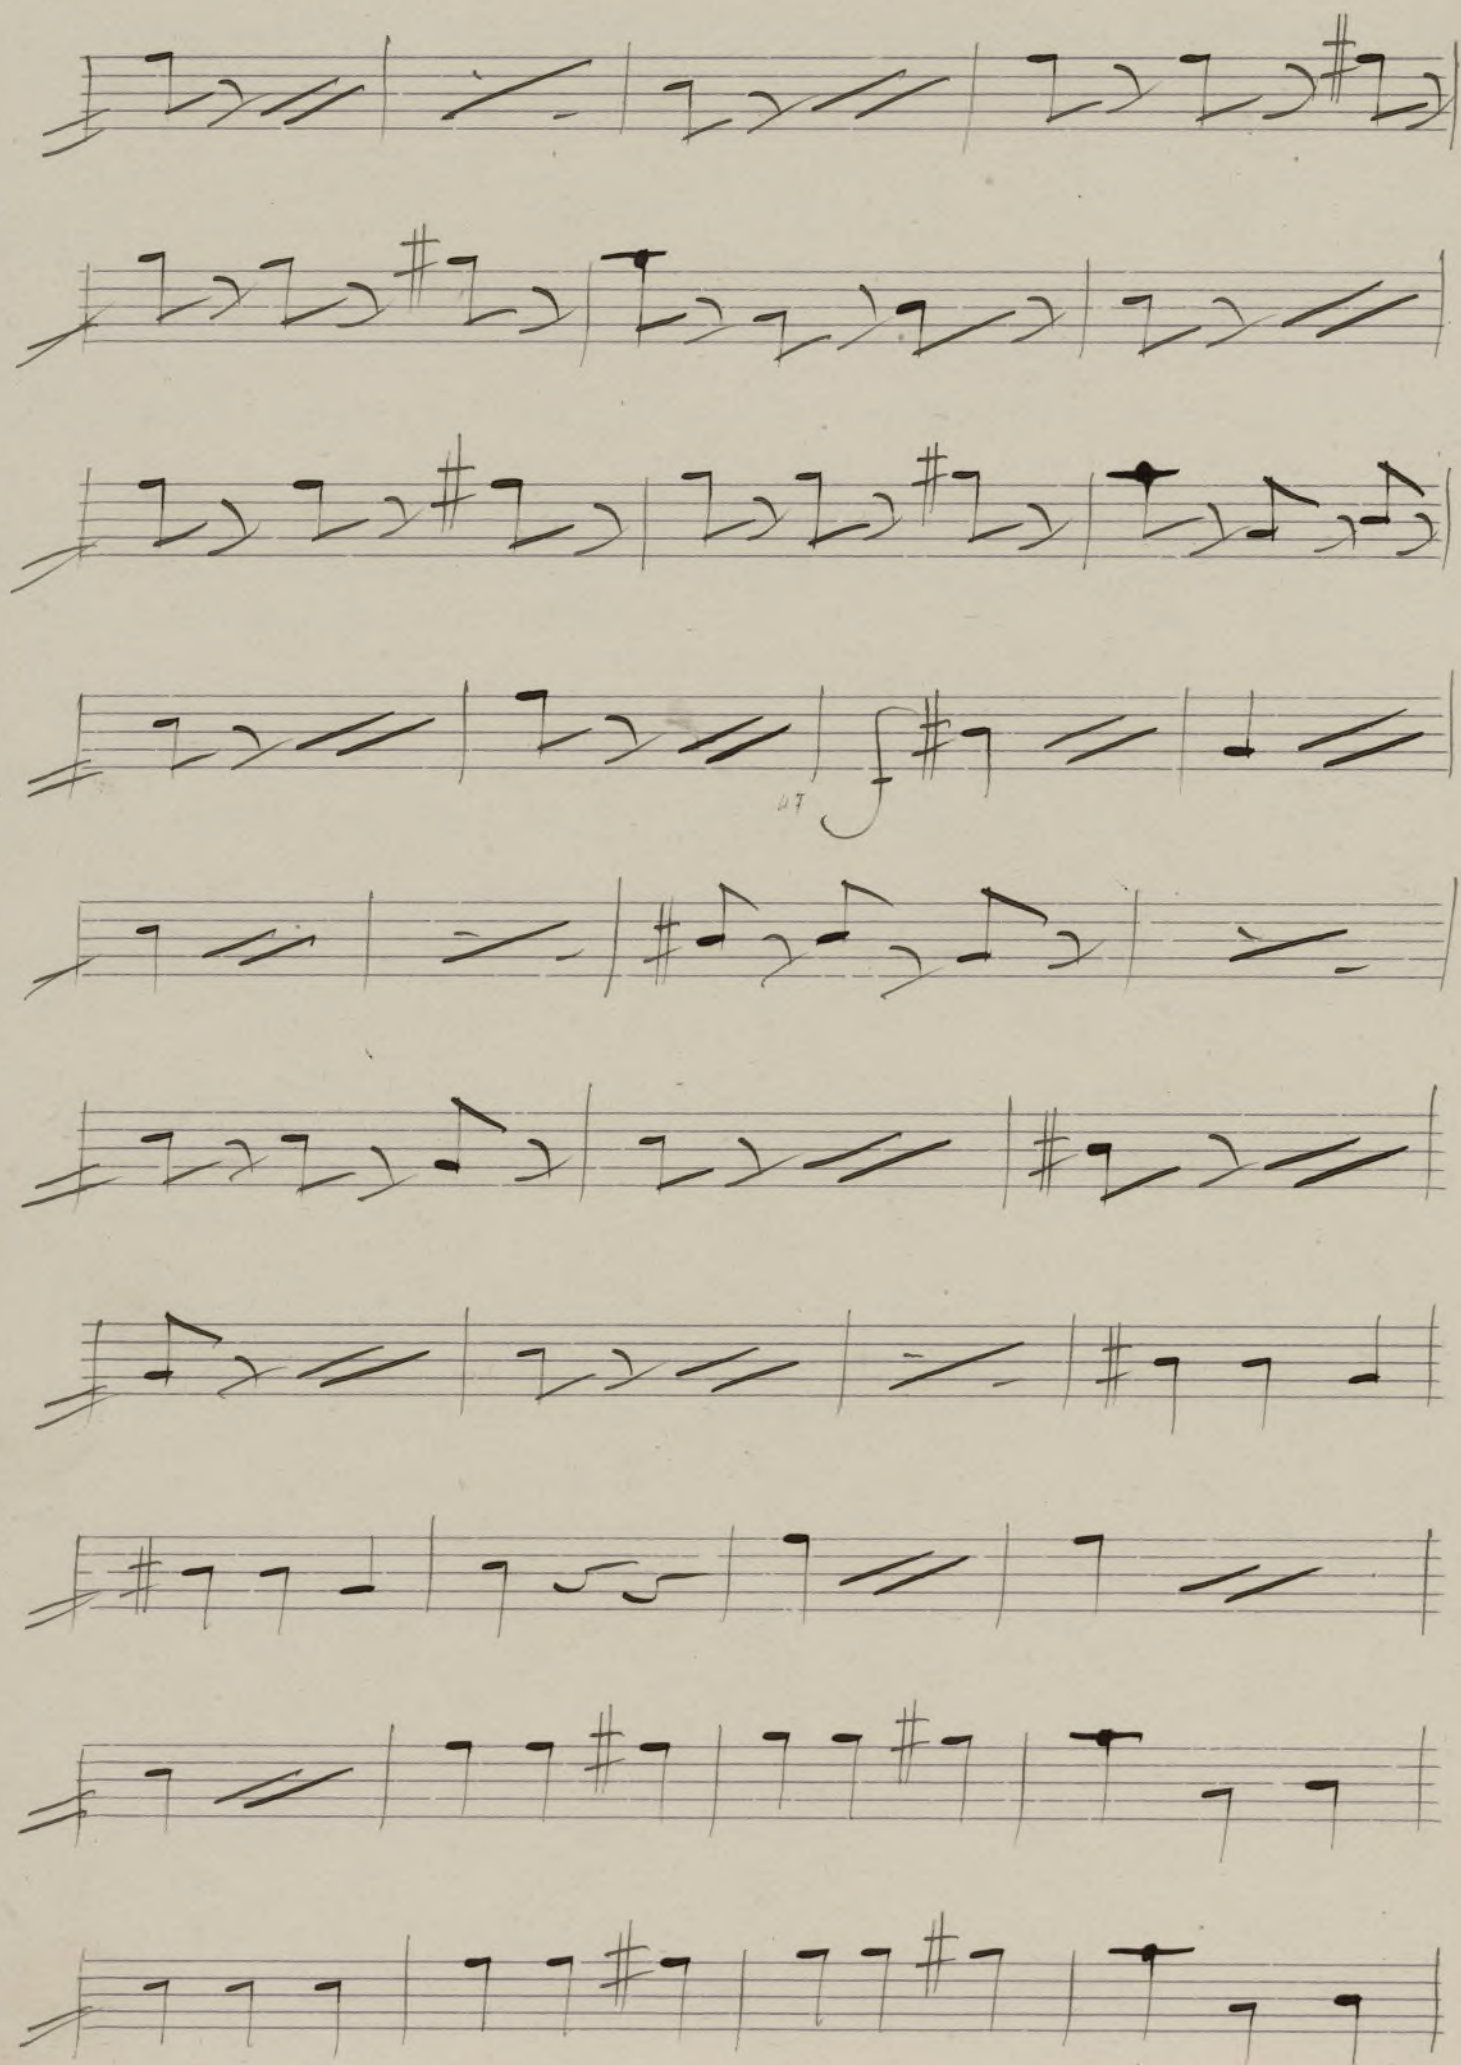 f
47